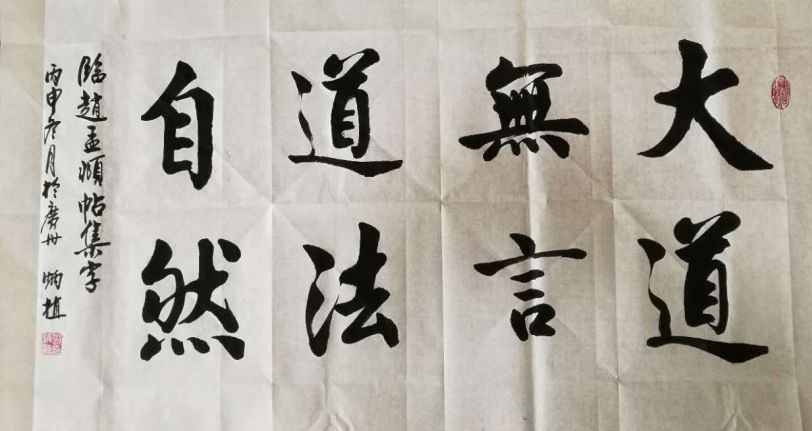 大道
無言
道法
自然
臨趙孟頫帖集字
丙申冬月於廣州 炳植